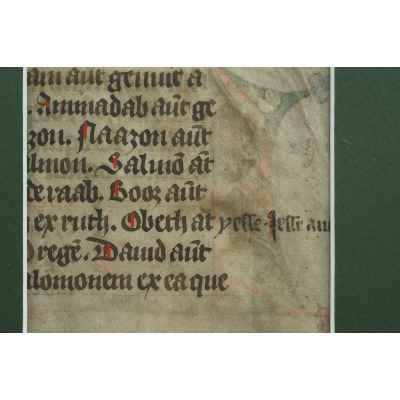 am aūt genuit a
. Aminadab aūt ge
zon. Naazon aūt
lmon. Salmō āt
de raab. Booz aūt
ex ruth. Obeth at yesse. Jesse aūt
d regē. Dauid aūt
alomonem ex ea que